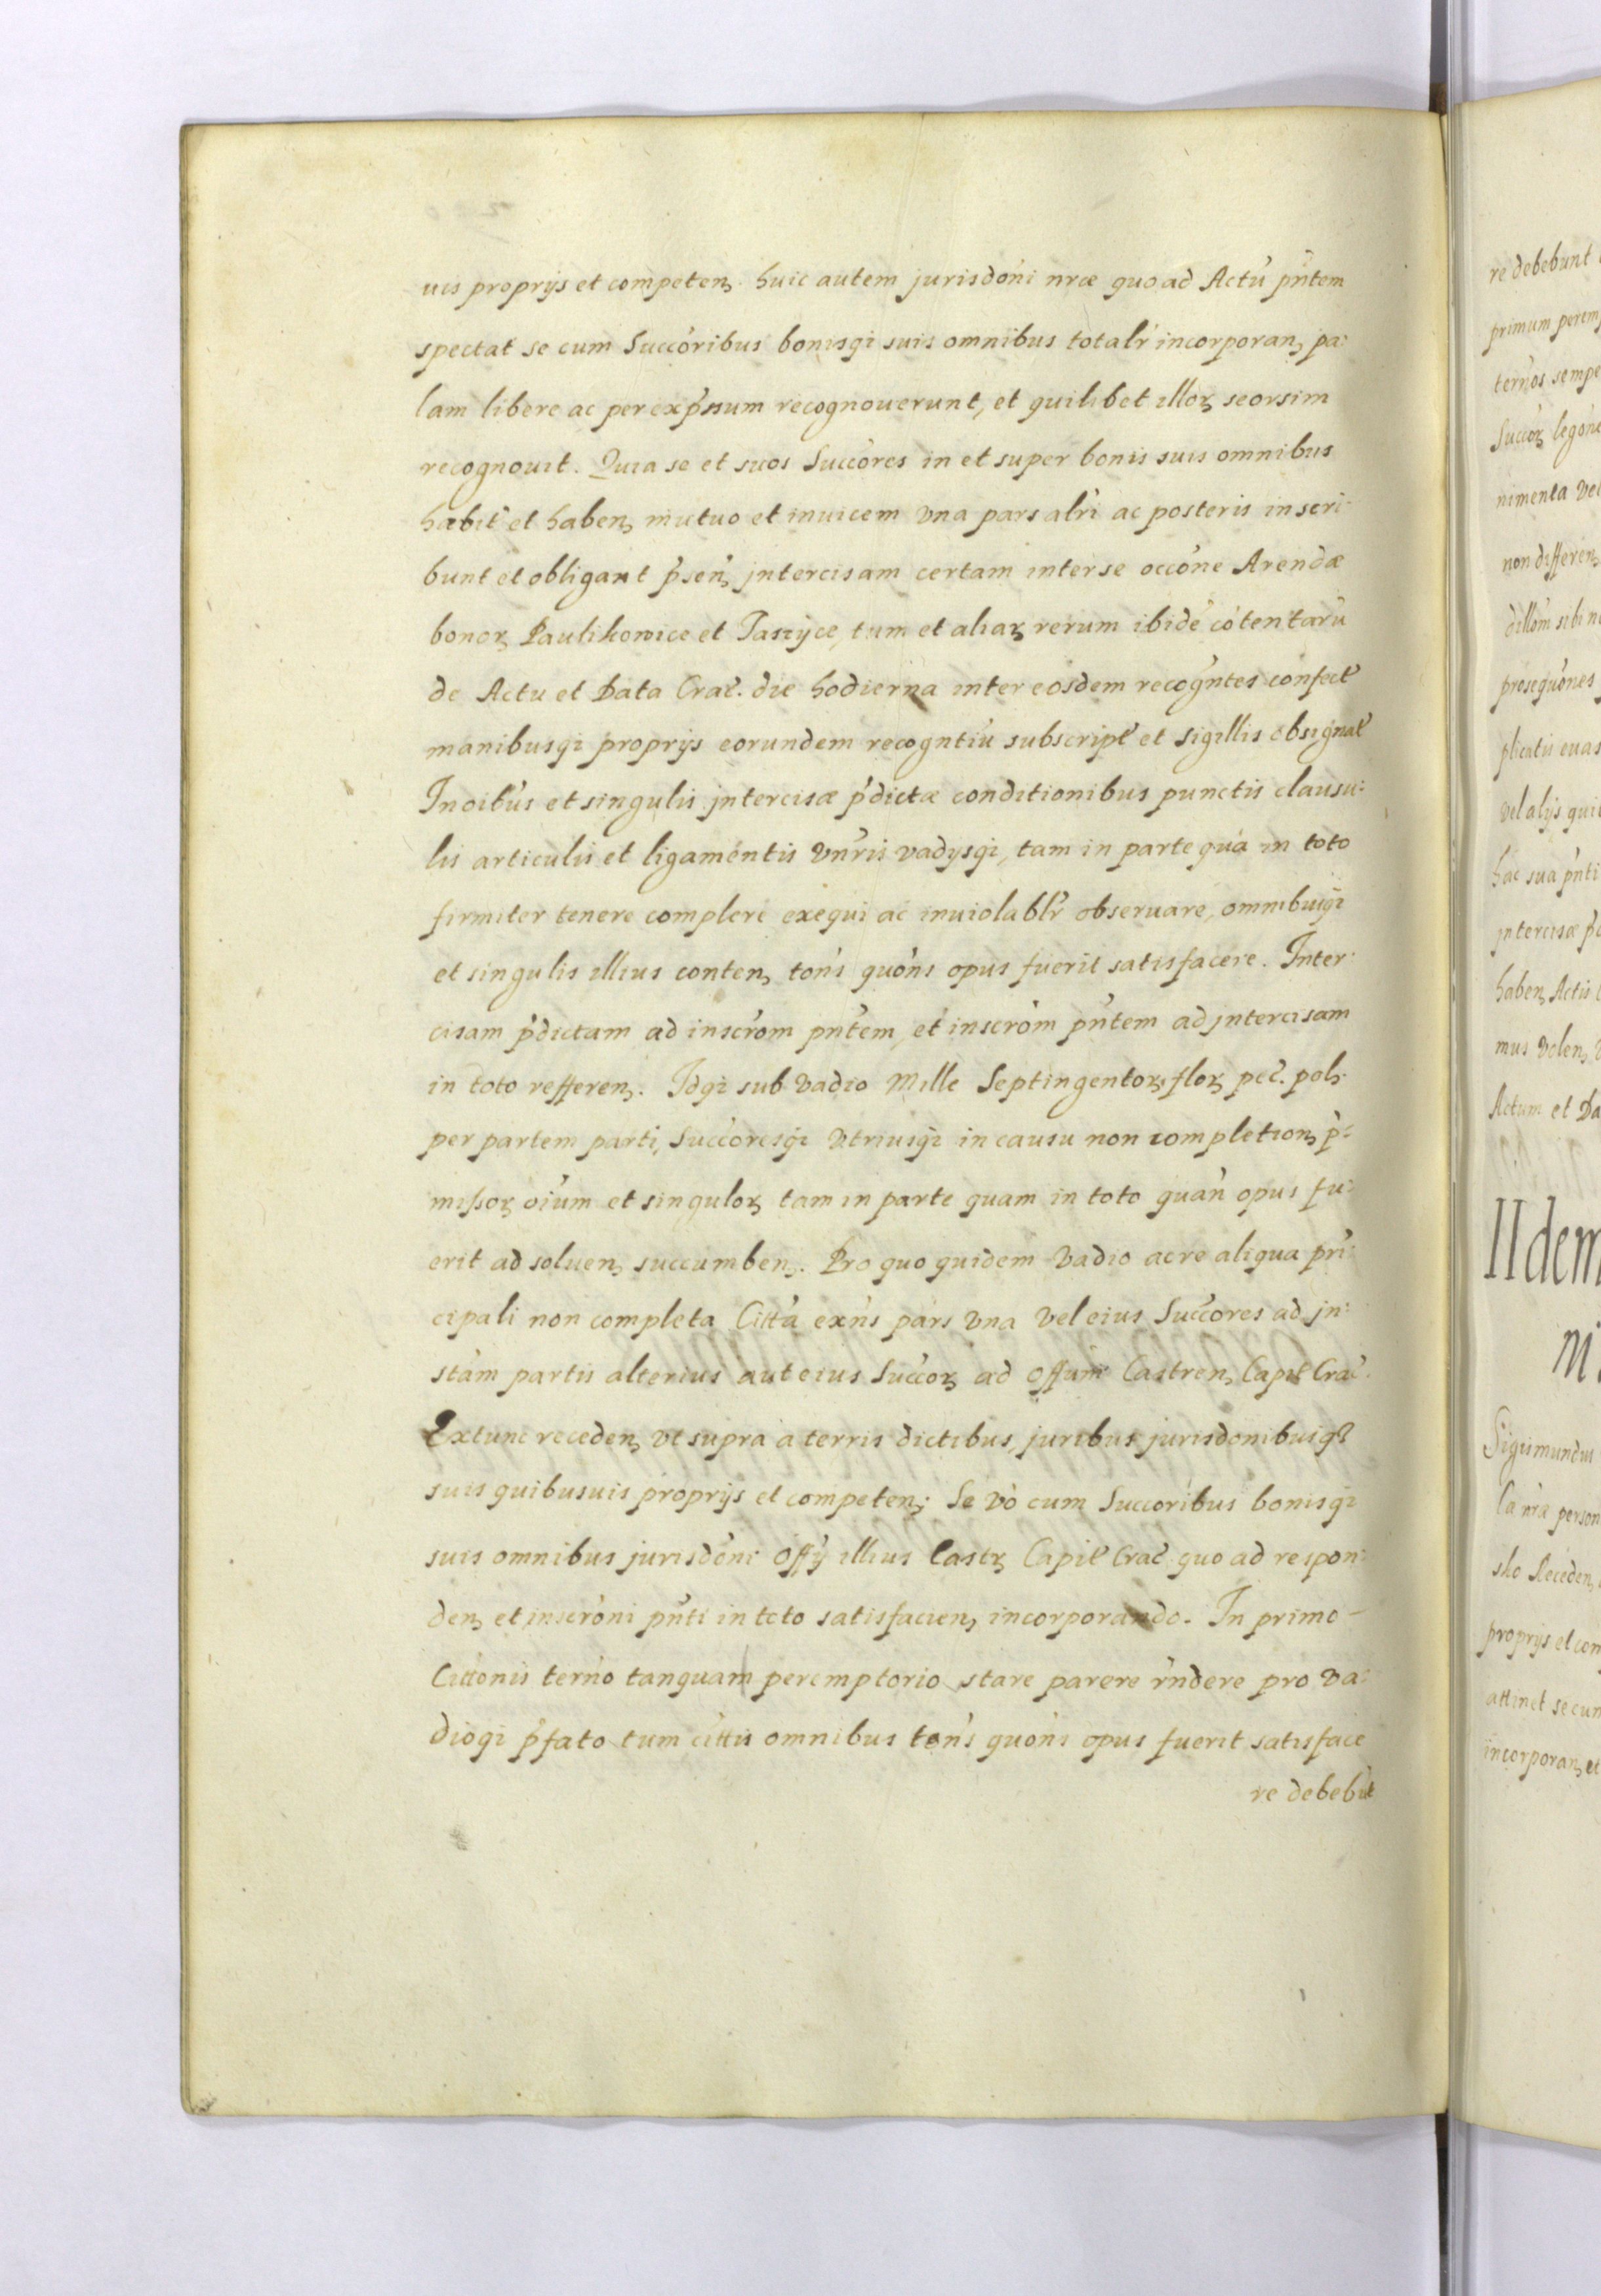 uis proprijs et competen, huic autem jurisdoni nræ quo ad Actū pñtem
spectat se cum Succoribus bonisq; suis omnibus totalr incorporan, pa:
lam libere ac per expssum recognouerunt, et quilibet illoꝝ seorsim
recognouit. Quia se et suos Succores in et super bonis suis omnibus
habit et haben, mutuo et inuicem vna pars alri ac posteris inscri:
bunt et obligant psen, jntercisam certam inter se occone Arendæ
bonoꝝ Paulikowice et Taszyce, tum et aliaꝝ rerum ibidē cōtentarū
de Actu et Data Crac. die hodierna inter eosdem recogntes confect
manibusq; proprijs eorundem recogntiū subscript et sigillis obsignat
In oibus et singulis jntercisæ pdictæ conditionibus punctis clausu:
lis articulis et ligamentis vnris vadysq;, tam in parte quā in toto
firmiter tenere complere exequi ac inuiolablr obseruare, omnibusq;
et singulis illius conten, tons quons opus fuerit satisfacere. Inter:
cisam pdictam ad inscrom pntem, et inscrom pntem ad jntercisam
in toto refferen,. Idq; sub vadio Mille Septingentoꝝ floꝝ pec. pol,.
per partem parti, Succoresq; vtriusq; in causu non completion, p:
missoꝝ oium et singuloꝝ tam in parte quam in toto quan opus fu:
erit ad soluen, succumben,. Pro quo quidem vadio ac re aliqua pri:
cipali non completa Citta exns pars vna vel eius Succores ad jn:
stam partis alterius aut eius Succoꝝ ad Offum Castren, Capit Crac.
Extunc receden, vt supra a terris dictibus, juribus jurisdonibusq;
suis quibusuis proprijs et competen; Se vo cum Succoribus bonisq;
suis omnibus jurisdoni Offy illius Castꝝ Capit Crac quo ad respon:
den, et inscroni pnti in toto satisfacien, incorporando. In primo -
Cittonis terno tanquam peremptorio stare parere rndere pro va:
dioq; pfato tum cittis omnibus tons quons opus fuerit satisface
re debebūt
re debebunt
primum perem
ternos sempe
Succoꝝ legone
nimenta vel
non differen,
dillom sibi n
prosequones
plicatis euas
vel alijs qui
hac sua pnti
jntercisæ p
haben, Actis
mus volen,
Actum et Da
IIdem
Sigismundus
Ca nra person
sko Receden,
proprijs et com
attinet se cum
incorporan, et